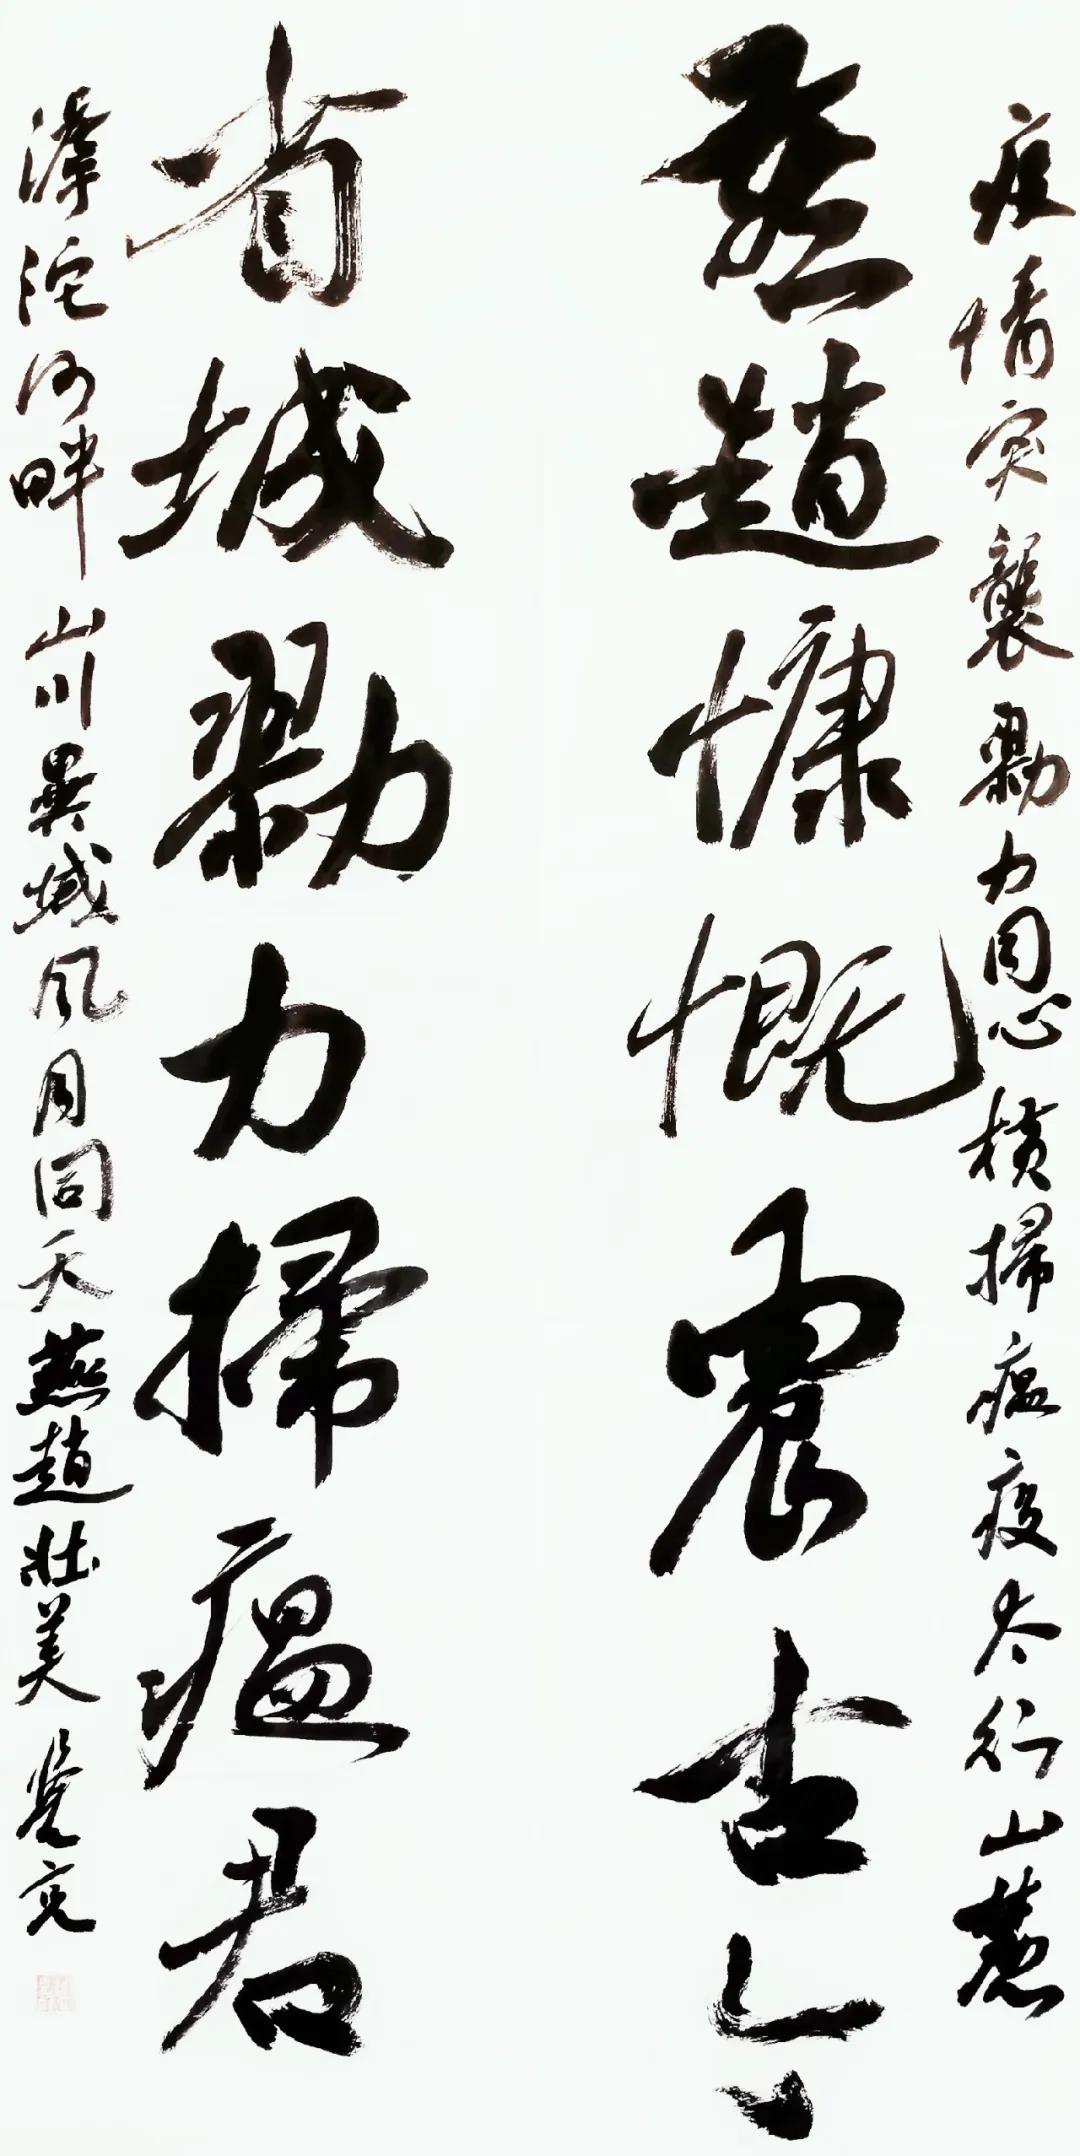 疫情突襲勠力同心横掃瘟疫太行山麓
燕趙慷慨震古今
省城勠力掃瘟君
滹沱河畔山川異域风月同天燕趙壯美